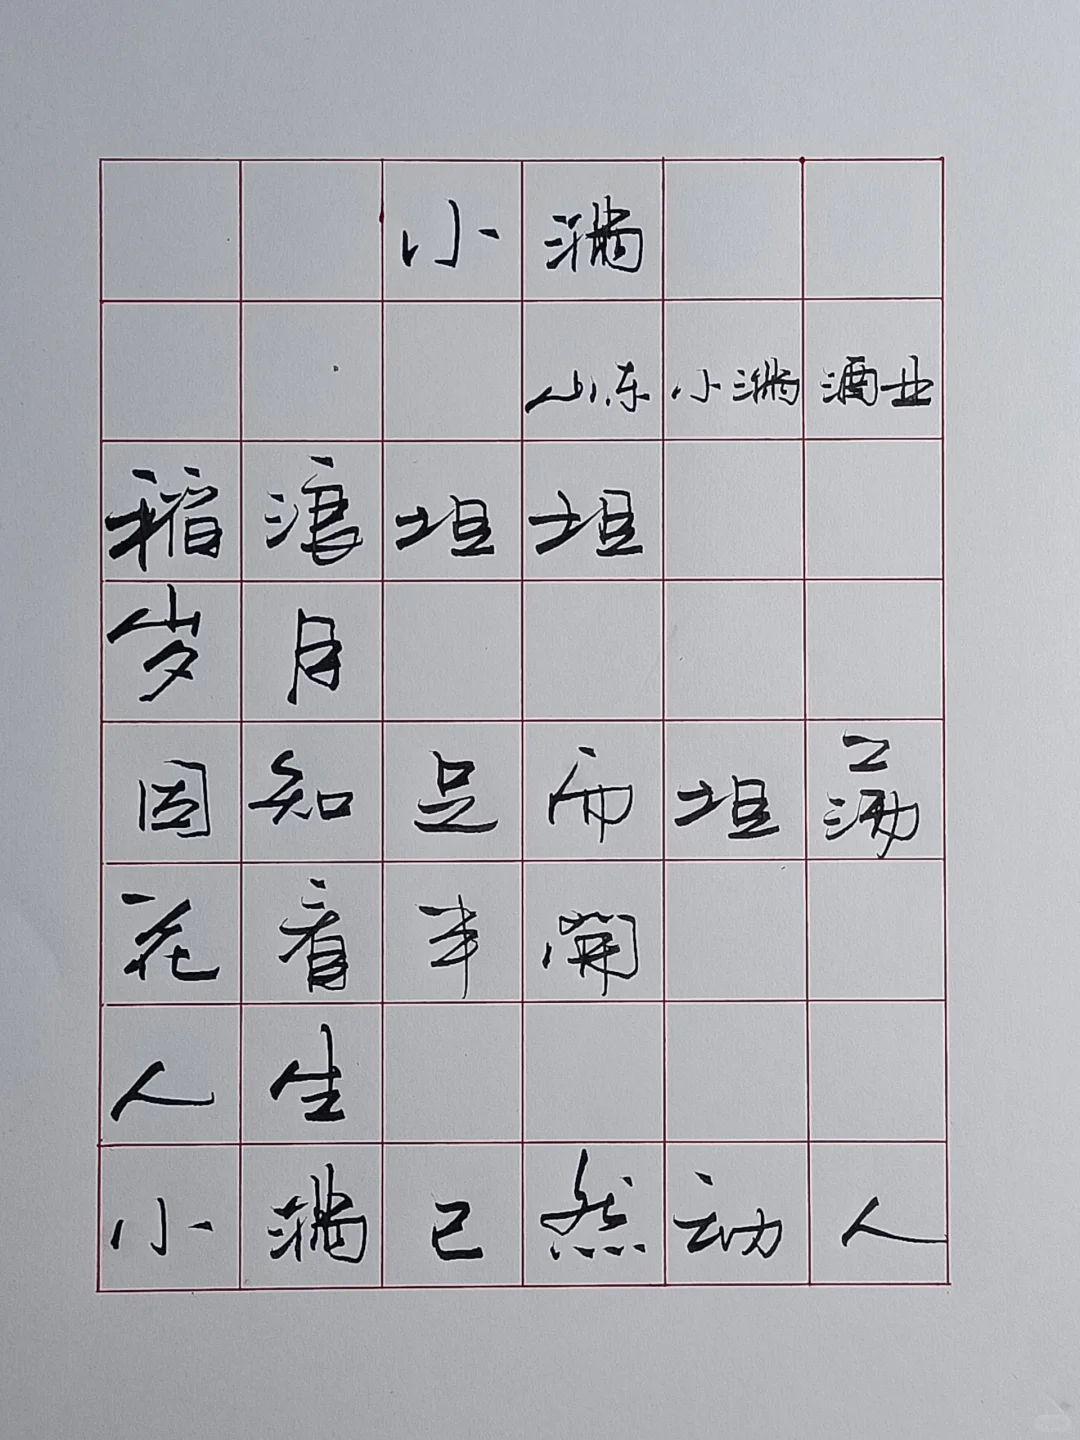 小满
山东小满酒业
稻浪坦坦
岁月
因知足而坦荡
花看半開
人生
小满已然动人